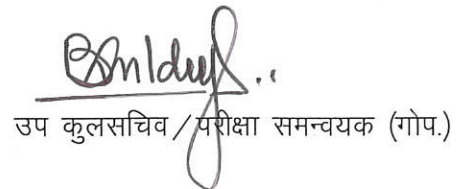 उप कुलसचिव/परीक्षा समन्वयक (गोप.)